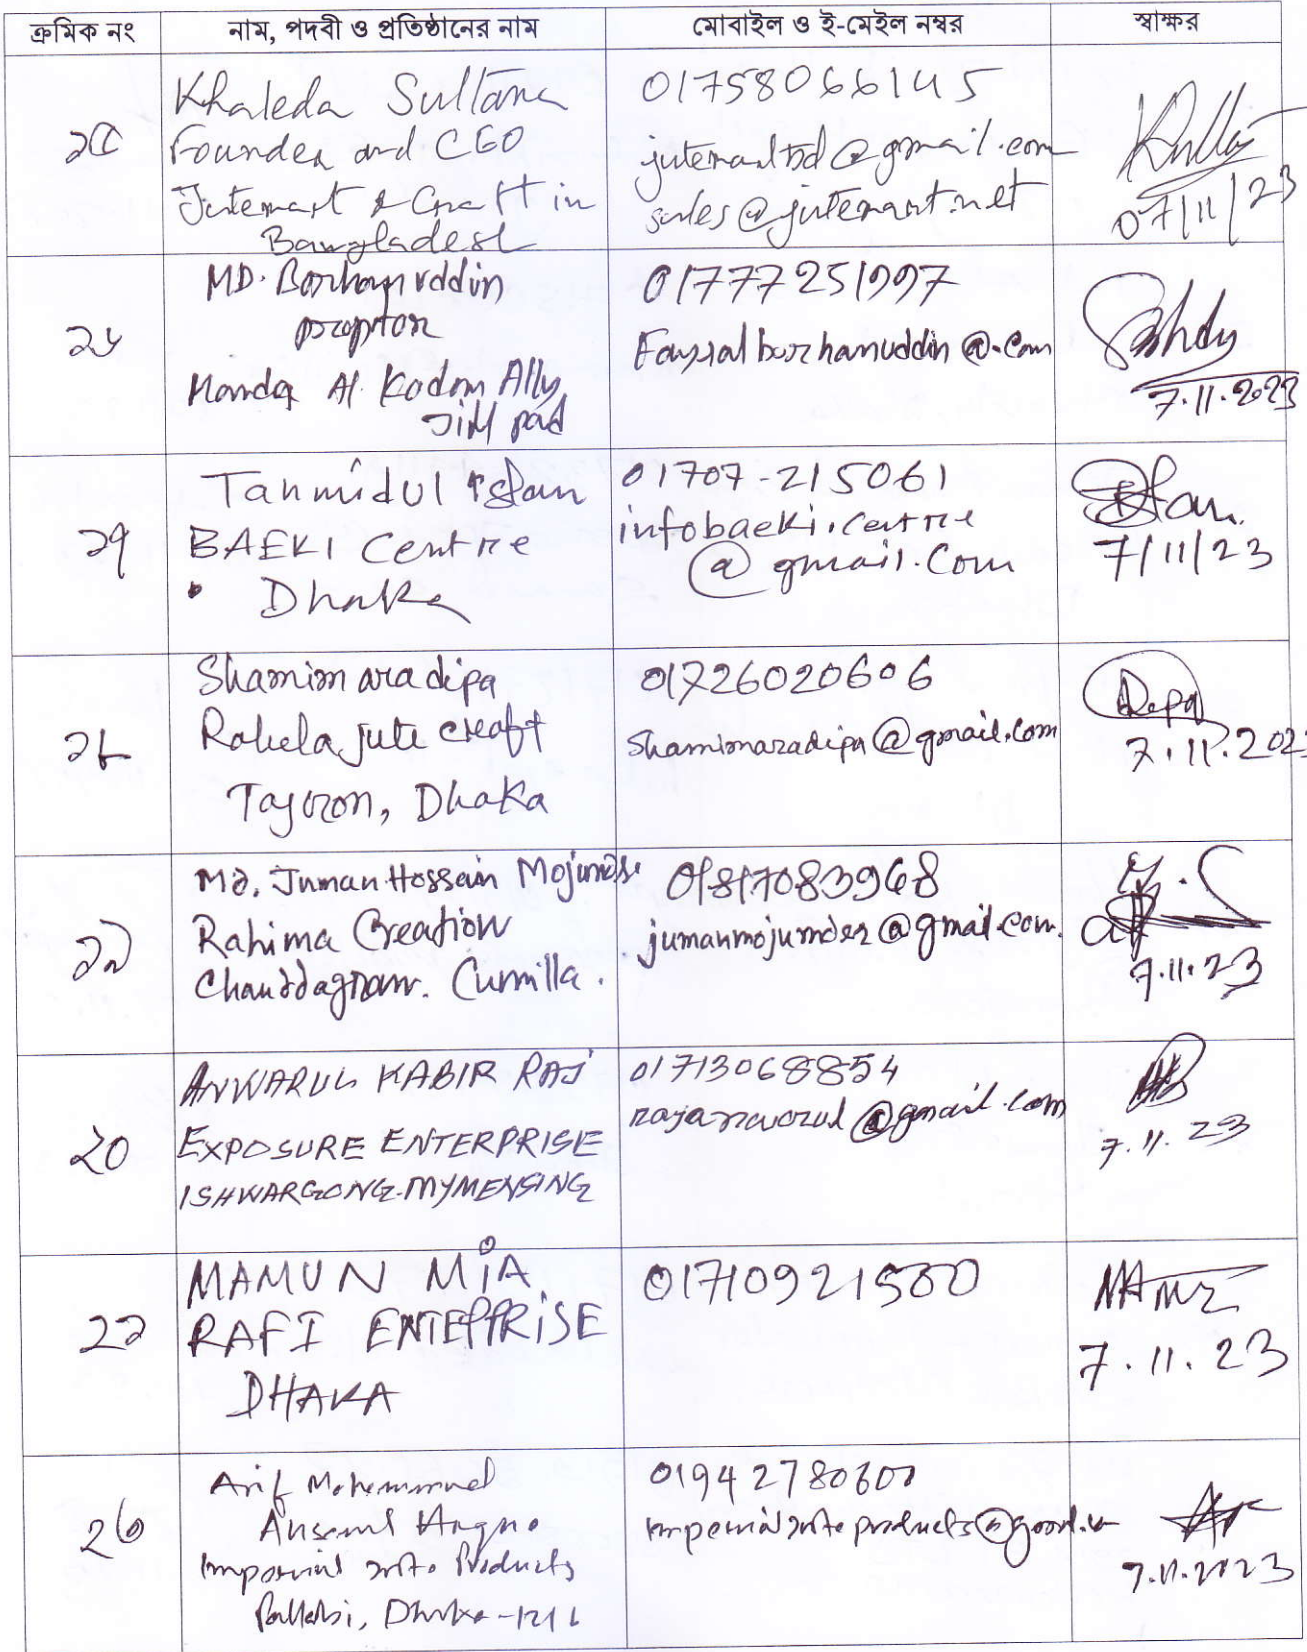 ক্রমিক নং	নাম, পদবী ও প্রতিষ্ঠানের নাম	মোবাইল ও ই-মেইল নম্বর	স্বাক্ষর
২৫
Khaleda Sultana
Founder and CEO
Jutemart & Craft in
Bangladesh
01758066145
jutemartbd@gmail.com
sales@jutemart.net
07/11/23
২৬
MD. Borhanuddin
proptor
Al Kodom Ally
01777251997
Faysalborhanuddin@.com
7.11.2023
২৭
Tanmidul Islam
BAEKI Centre
Dhaka
01707-215061
infobaeki.centre
@gmail.com
7/11/23
২৮
Shamim ara dipa
Rahela jute creaft
Tajgon, Dhaka
01726020606
shamimaradipa@gmail.com
Dipa
7.11.2023
২৯
Md. Juman Hossain Mojumder
Rahima Creation
Chauddagram. Cumilla.
01817083968
jumanmojumder@gmail.com.
7.11.23
২০
ANWARUL KABIR RAJ
EXPOSURE ENTERPRISE
ISHWARGONG-MYMENSING
01713068854
@gmail.com
7.11.23
২২
MAMUN MIA
RAFI ENTERPRISE
DHAKA
01710921500
7.11.23
২৩
Arif Mohammad
Imperial Jute Products
Pallabi, Dhaka-1216
01942780600
7.11.2023